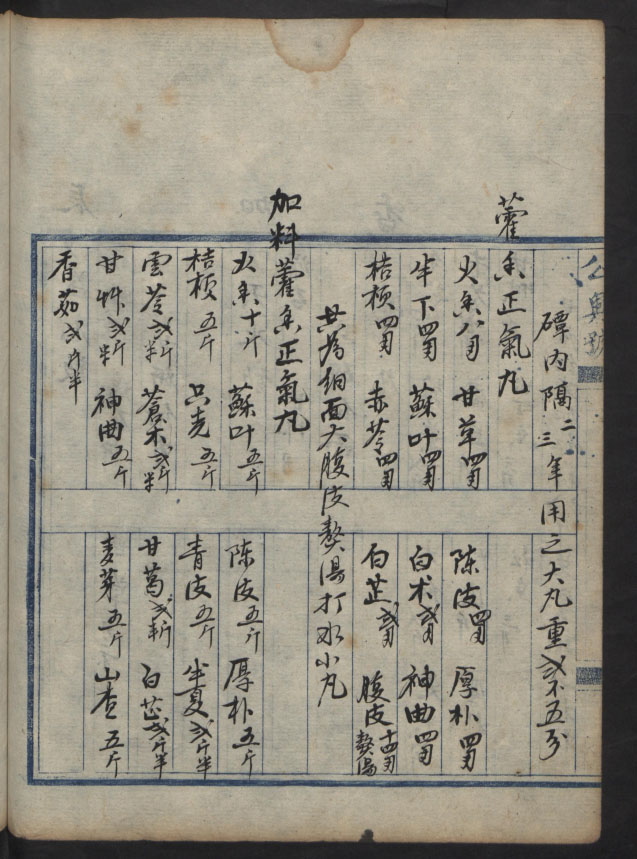 公興號
磹内隔二三年用之大丸重弍不五分
藿香正氣丸
火香八两 甘草四两 陈皮四两 厚朴四两
半下四两 蘇叶四两 白术弍两 神曲四两
桔梗四两 赤苓四两 白芷弍两 腹皮十四两熬湯
共為细面大腹皮熬湯打水小丸
加料藿香正氣丸
火香十斤 蘇叶五斤 陈皮五斤 厚朴五斤
桔梗五斤 只壳五斤 青皮五斤 半夏弍斤半
雲苓弍斤半 蒼术弍斤半 甘葛弍斤半 白芷弍斤半
甘草弍斤半 神曲五斤 麦芽五斤 山查五斤
香茹弍斤半